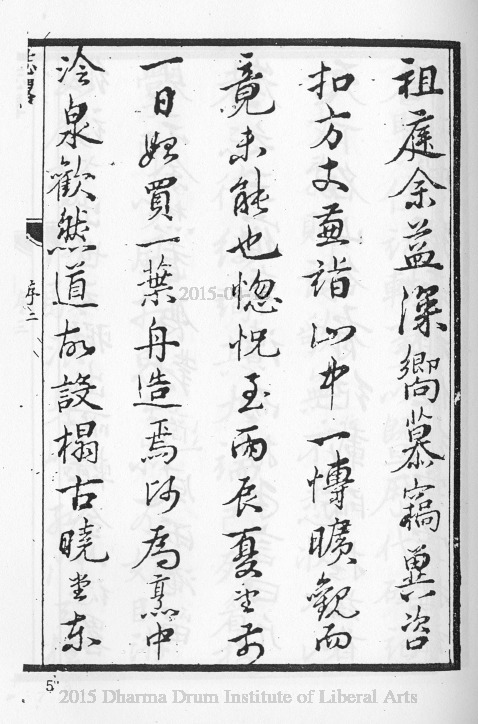 祖庭余益深嚮慕竊冀咨
扣方丈兼詣山中一慱曠觀而
竟未能也惚怳至丙辰夏坐前
一日始買一葉舟造焉師為烹中
泠泉歡然道故設榻古曉堂東
序二
5
2015 Dharma Drum Institute of Liberal Arts